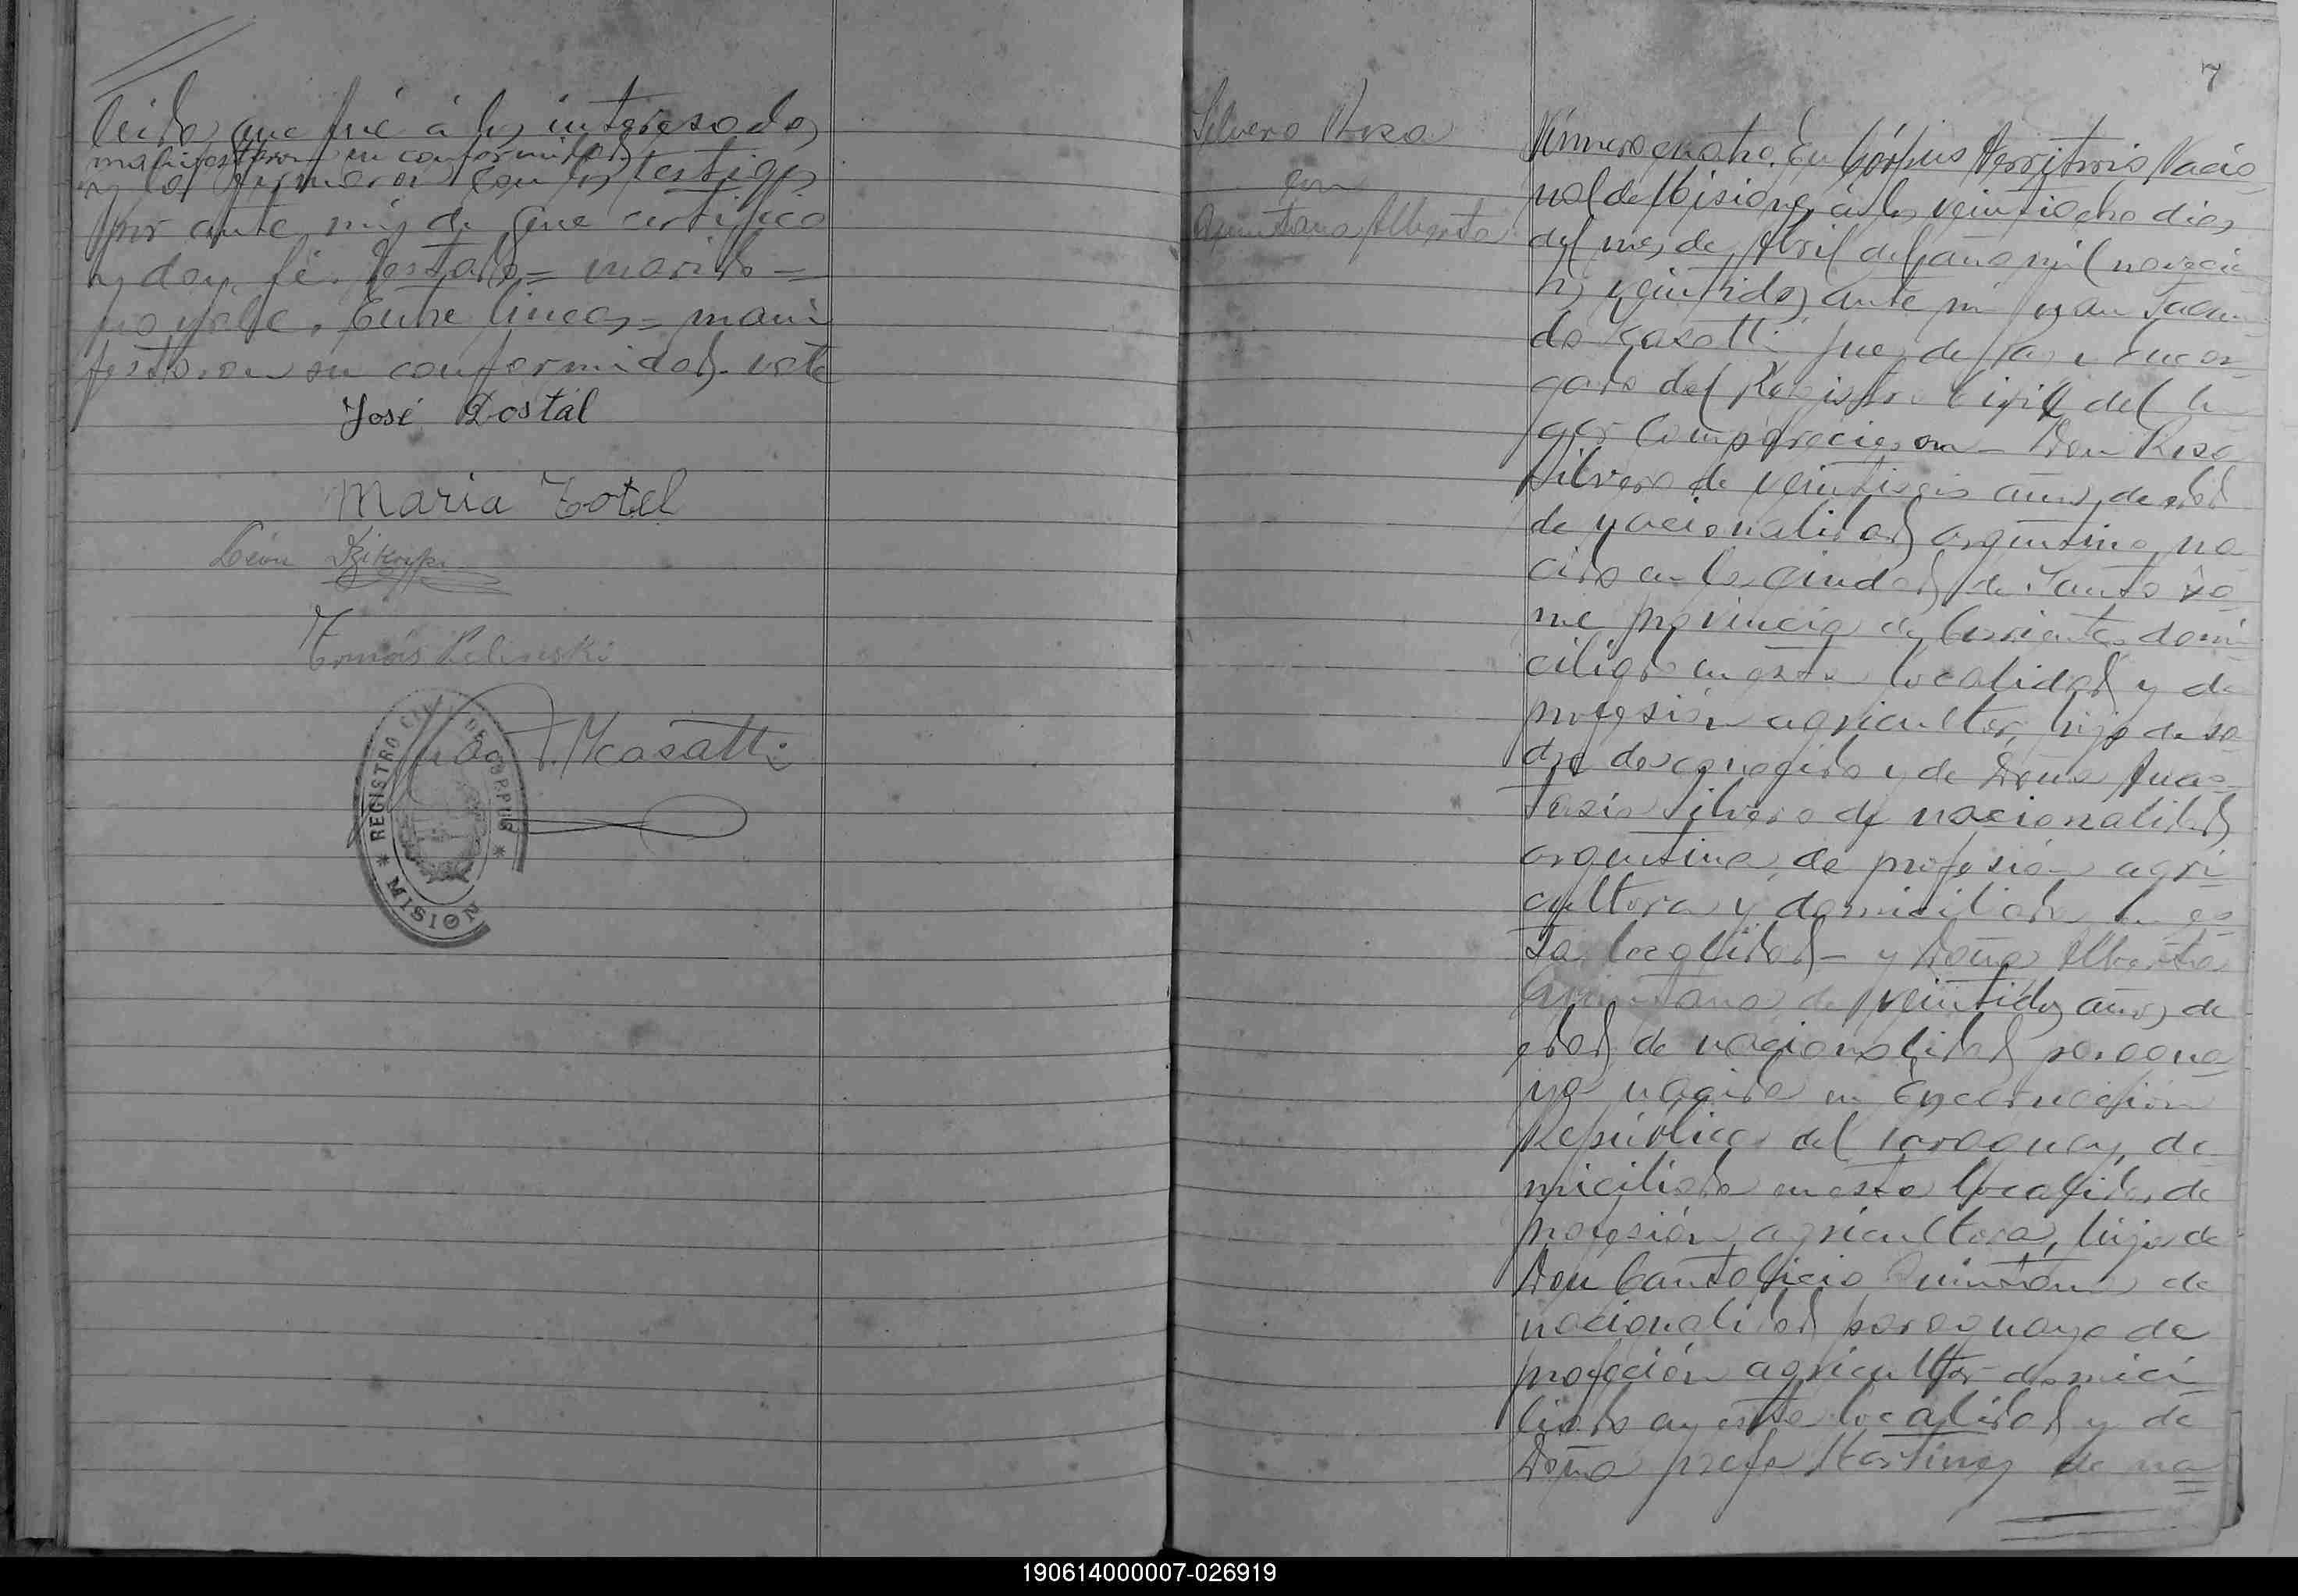 leida que fué á los interesados
manifestaron su conformidad
y la firmaron con los testigos
por ante mi, de que certifico
y doy fé. Testado = marido =
no vale. Entre lineas = mani
festaron su conformidad. vale
José Dostál
Maria Totel
León
Tomás
J. Kasatti
REGISTRO CIVIL DE CORPUS
* MISION *
7
Silvero Rosa
con
Quintana Alberta
Número cuatro. En Córpus Territorio Nacio
nal de Misiones, a los veintiocho dias
del mes de Abril del año mil novecien
tos veintidos ante mi Juan
do Kasatti Juez de Paz y Encar
gado del Registro Civil del lu
gar Comparecieron - Don Rosa
Silvero de veintiseis años de edad
de nacionalidad argentino, na
cido en la ciudad de Santo To
me provincia de Corrientes domi
ciliado en esta localidad y de
profesión agricultor, hijo de pa
dre desconocido y de Doña Anas
tasia Silvero de nacionalidad
argentina, de profesión agri
cultora y domiciliada en es
ta localidad - y Doña Alberta
Quintana de veintidos años de
edad de nacionalidad paragua
ya nacida en Encarnación
República del Paraguay, do
miciliada en esta localidad de
profesión agricultora, hija de
Don Cantalicio Quintana de
nacionalidad paraguaya de
profeción agricultor domici
liado en esta localidad y de
Doña Martinez de na
190614000007-026919